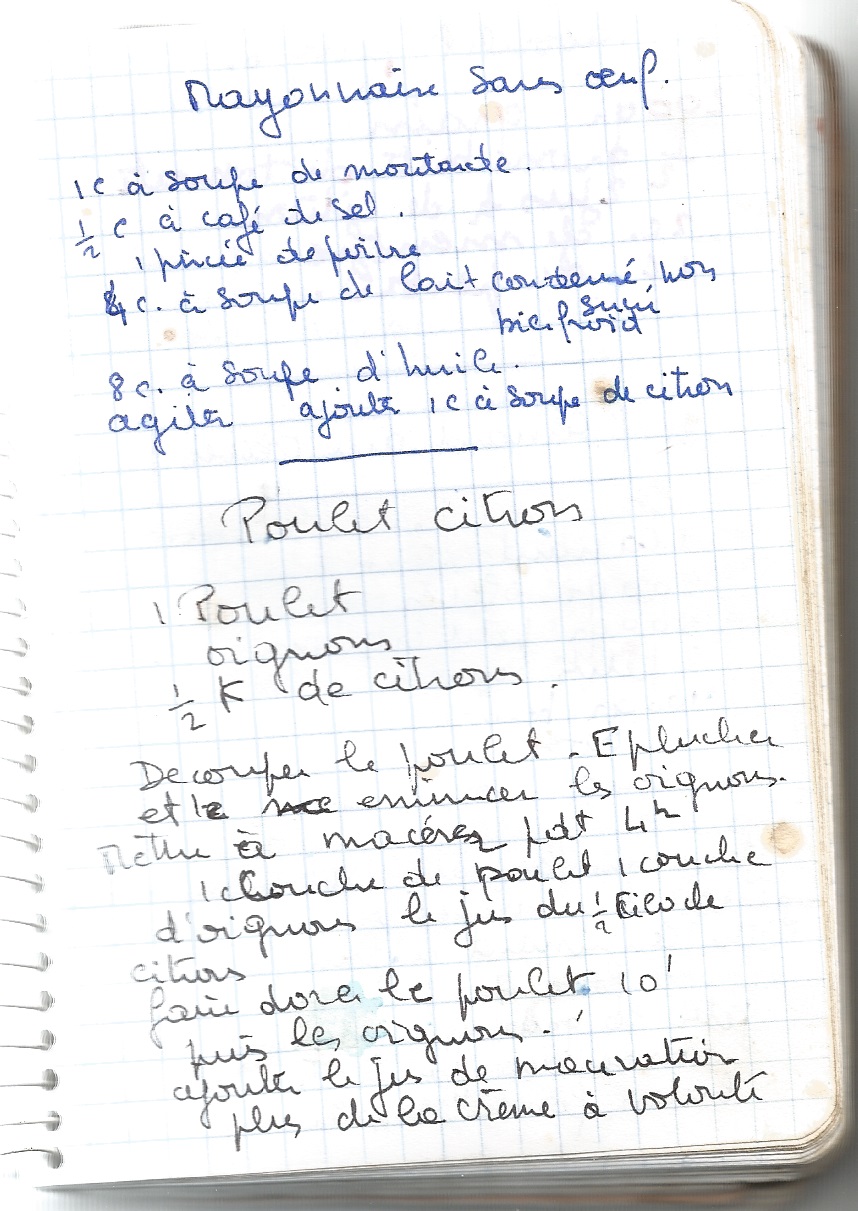 Mayonnaise sans œuf.
1 c à soupe de moutarde.
1/2 c à café de sel.
1 pincée de poivre
4 c. à soupe de lait condensé, non
sucré
bien froid
8 c. à soupe d'huile.
agiter ajouter 1 c à soupe de citron
Poulet citron
1 Poulet
oignons
1/2 K de citrons.
Decouper le poulet. Eplucher
et émincer les oignons.
Mettre à macérer pdt 4h
1 couche de poulet 1 couche
d'oignons le jus du 1/2 kilo de
citrons
faire dorer le poulet 10'
puis les oignons.
ajouter le jus de macération
plus de la crème à volonté